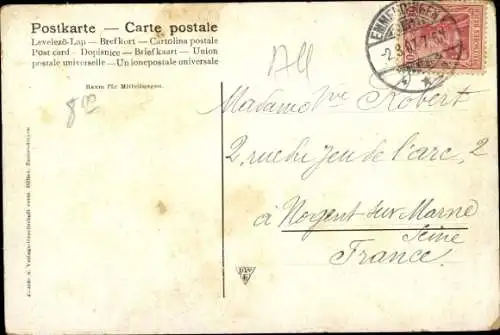 Postkarte — Carte postale
Levelező-Lap — Brefkort — Cartolina postale
Post card — Dopisnice — Briefkaart — Union
postale universelle — Unionepostale universale
Raum für Mitteilungen.
8 00
All
EMMENDINGEN
2.8.07. 7-8N
Madame Vve Robert
2, rue du Jeu de l'arc, 2
à Nogent sur Marne
Seine
France